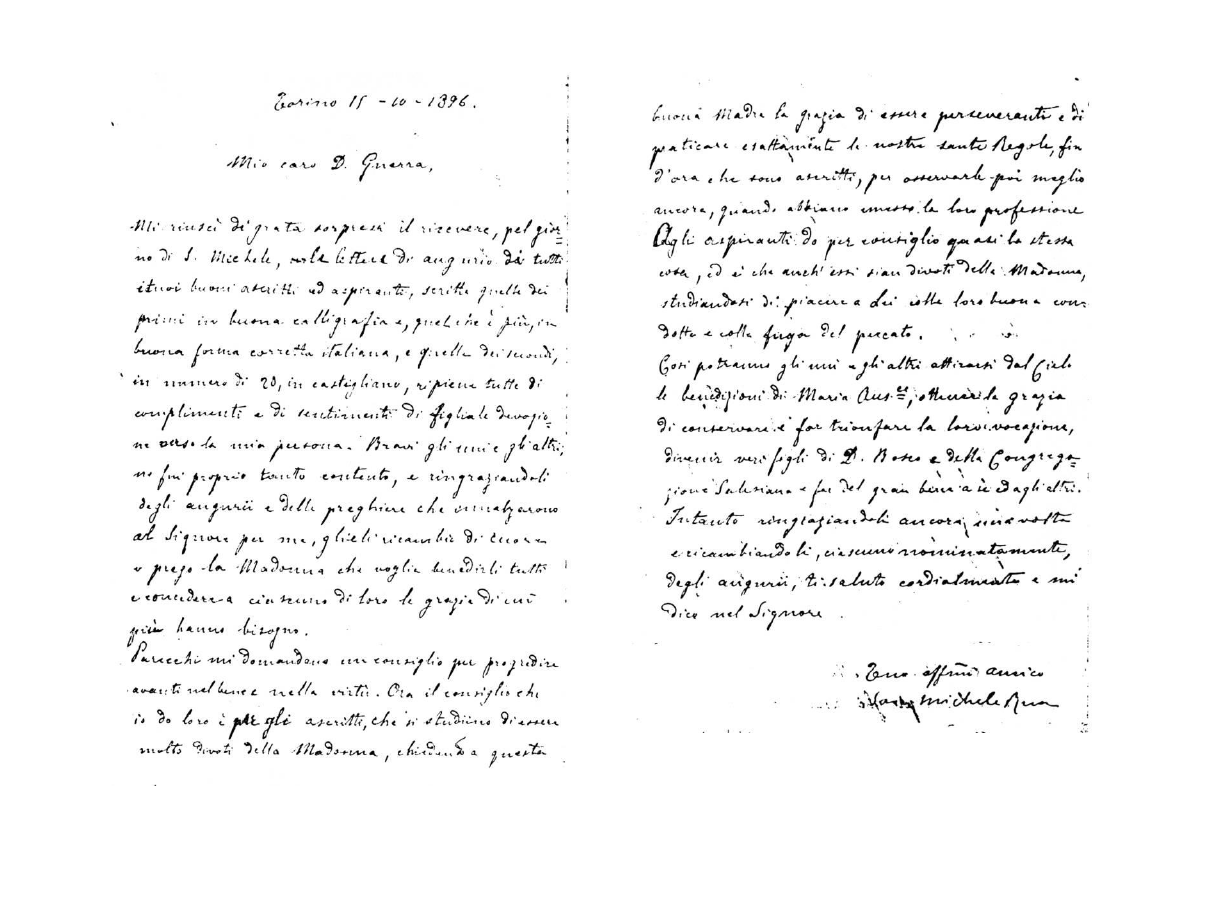 Torino 15 - 10 - 1896.
Mio caro D. Guerra,
Mi riuscì di grata sorpresa il ricevere, pel gior=
no di S. Michele, lettere di augurio da tutti
i tuoi buoni ascritti ed aspiranti, scritte quelle dei
primi in buona calligrafia e, quel che è più, in
buona forma corretta italiana, e quelle dei secondi,
in numero di 20, in castigliano, ripiene tutte di
complimenti e di sentimenti di figliale devozio=
ne verso la mia persona. Bravi gli uni e gli altri;
ne fui proprio tanto contento, e ringraziandoli
degli augurii e delle preghiere che innalzarono
al Signore per me, glieli ricambio di cuore
e prego la Madonna che voglia benedirli tutti
e concedere a ciascuno di loro le grazie di cui
più hanno bisogno.
Parecchi mi domandano un consiglio per progredire
avanti nel bene e nella virtù. Ora il consiglio che
io do loro è per gli ascritti, che si studiino di essere
molto divoti della Madonna, chiedendo a questa
buona Madre la grazia di essere perseveranti e di
praticare esattamente le nostre sante Regole, fin
d'ora che sono ascritti, per osservarle poi meglio
ancora, quando abbiano emesso la loro professione
Agli aspiranti do per consiglio quasi la stessa
cosa, ed è che anch'essi sian divoti della Madonna,
studiandosi di piacere a Lei colla loro buona con=
dotta e colla fuga del peccato.
Così potranno gli uni e gli altri attirarsi dal Cielo
le benedizioni di Maria Aus.ce, ottenere la grazia
di conservare e far trionfare la loro vocazione,
divenir veri figli di D. Bosco e della Congrega=
zione Salesiana e far del gran bene a sè ed agli altri.
Intanto ringraziandoli ancora una volta
e ricambiandoli, ciascuno nominatamente,
degli augurii, ti saluto cordialmente e mi
dico nel Signore
Tuo aff.mo amico
Michele Rua